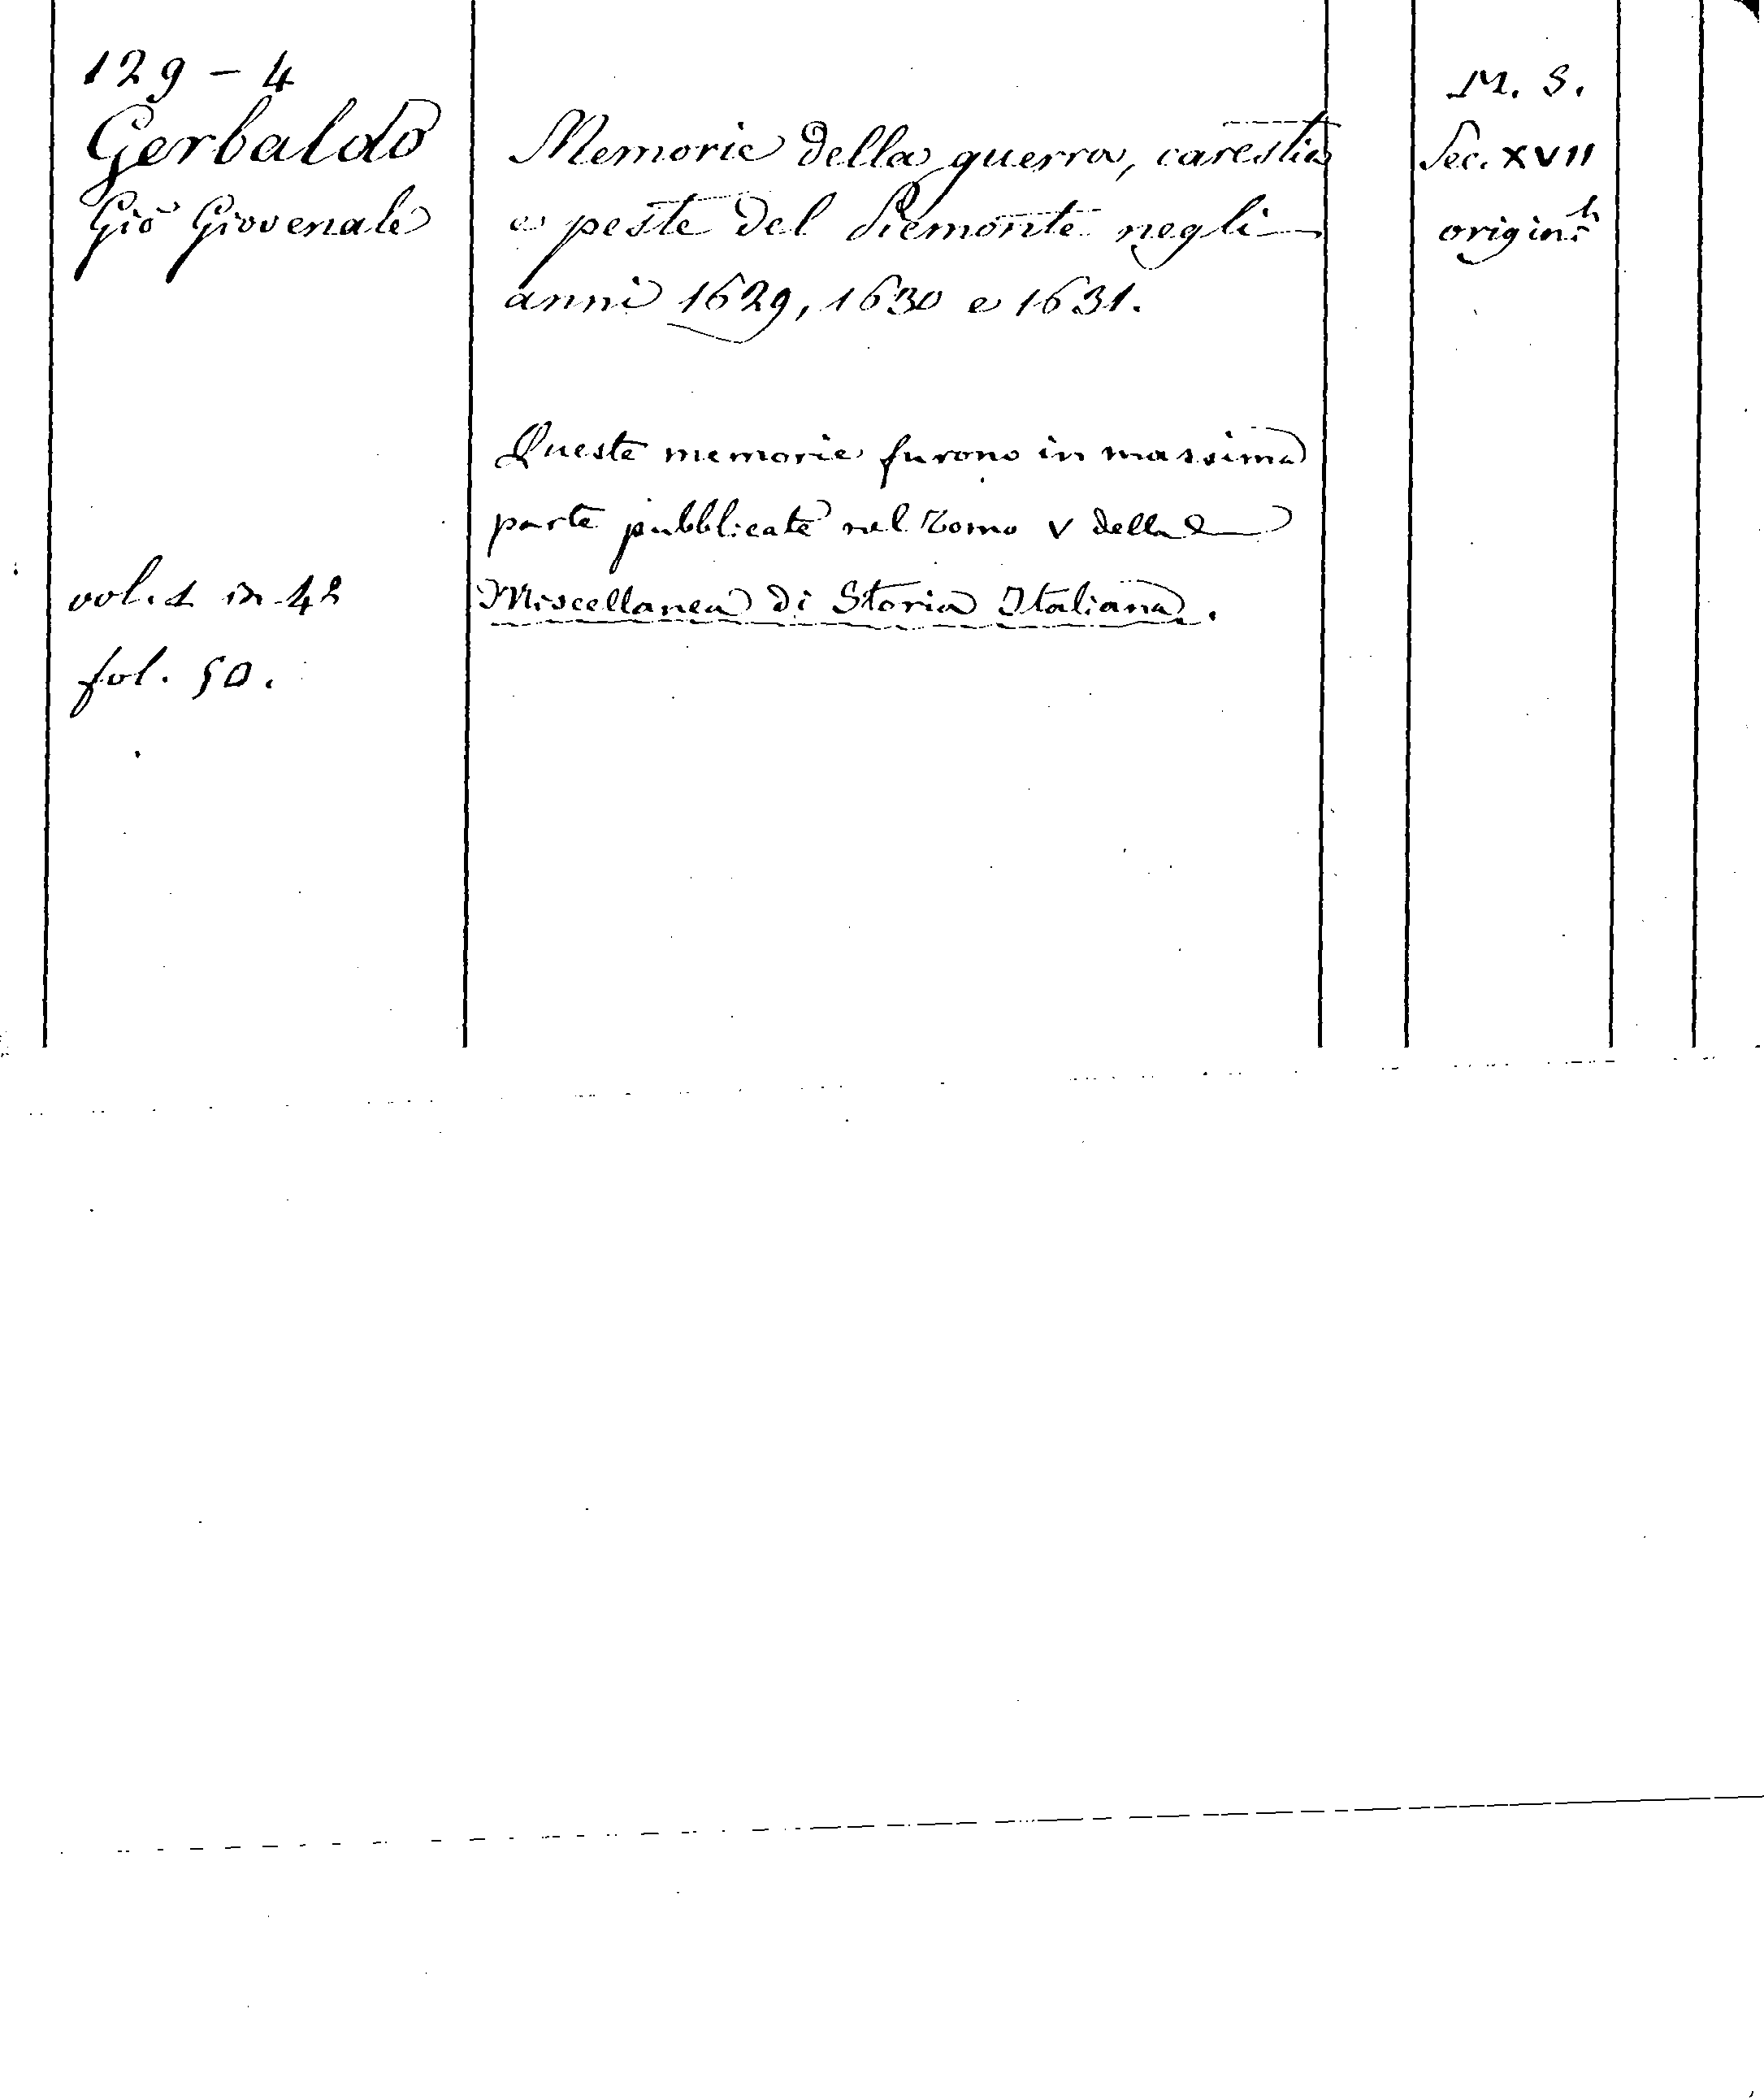 129 - 4
Gerbaldo
Gio Giovenale
vol. 1 in 4º
fol. 50.
Memorie della guerra, carestia
e peste del Piemonte negli
anni 1629, 1630 e 1631.
Queste memorie furono in massima
parte pubblicate nel Tomo V della
Miscellanea di Storia Italiana.
M. S.
Sec. XVII
origin.